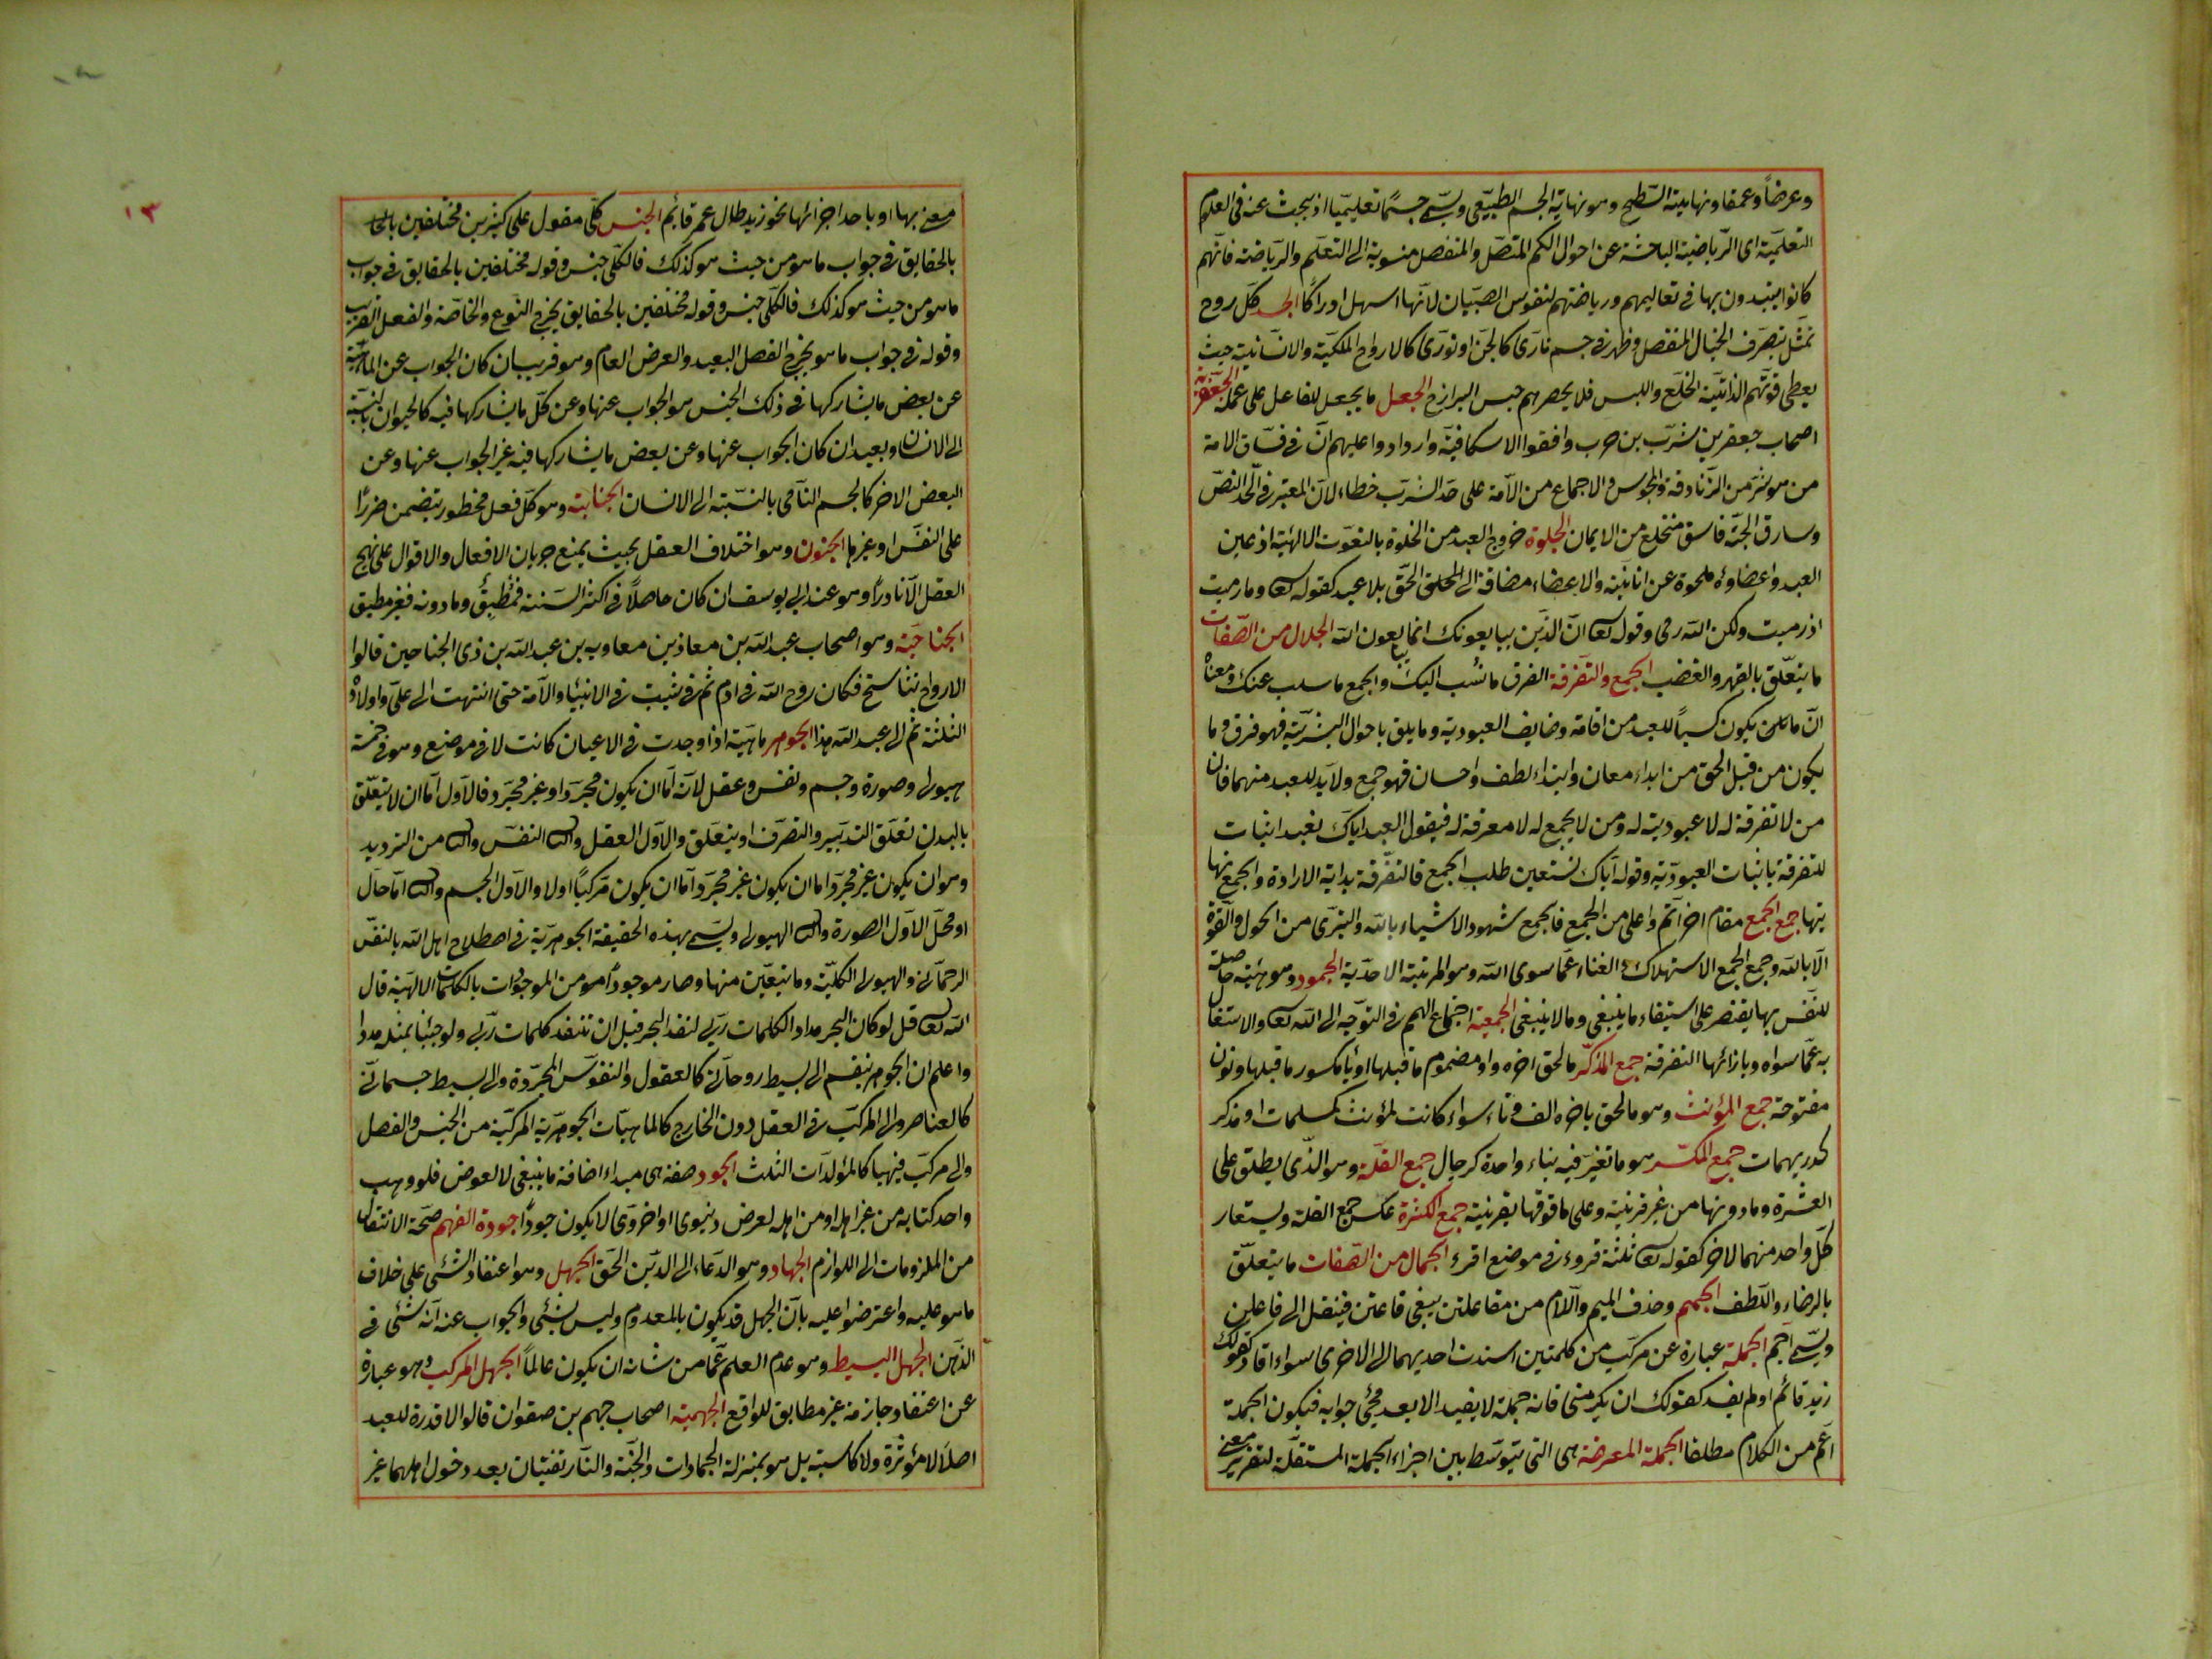 وعرضاً وعمقا ونهايته السطح وهو نهاية الجسم الطبيعى ويسمى جسمًا تعليميا اذ يبحث عنه فى العلوم
التعليمية اى الرياضية الباحثة عن احوال الكم المتصل والمنفصل منسوبة الى التعلم والرياضة فانهم
كانوا يبتدون بها فى تعاليمهم ورياضتهم لنفوس الصبيان لانها اسهل ادراكًا الجسد كل روح
تمثل بتصرف الخيال المنفصل وظهر فى جسم نارى كالجن او نورى كالارواح الملكية والانسانية حيث
يعطى قوتهم الذاتية الخلع واللبس فلا يحصرهم حبس البرازخ الجعل ما يجعل للفاعل على عمله الجعفرية
اصحاب جعفر بن مشرب بن حرب وافقوا الاسكافية وازدادوا عليهم ان فى فساق الامة
من هو شر من الزنادقة والمجوس والاجماع من الامة على حد الشرب خطاء لان المعتبر فى الحد النص
وسارق الحبة فاسق منخلع من الايمان الجلوة خروج العبد من الخلوة بالنعوت الالهية اذ عين
العبد واعضاؤه ممحوة عن انانية والاعضاء مضافة الى الحق بلا عبد كقوله تعا وما رميت
اذ رميت ولكن الله رمى وقوله تعا ان الذين يبايعونك انما يبايعون الله الجلال من الصفات
ما يتعلق بالقهر والغضب الجمع والتفرقة الفرق ما نسب اليك والجمع ما سلب عنك ومعناه
ان ما يكون كسباً للعبد من اقامة وضايف العبودية وما يليق باحوال البشرية فهو فرق وما
يكون من قبل الحق من ابداء معان وابتداء لطف واحسان فهو جمع ولا بد للعبد منهما فان
من لا تفرقة له لا عبودية له ومن لا جمع له لا معرفة له فيقول العبد اياك نعبد اثبات
للتفرقة باثبات العبودية وقوله اياك نستعين طلب الجمع فالتفرقة بداية الارادة والجمع نها
يتها جمع الجمع مقام اخر اتم واعلى من الجمع فالجمع شهود الاشياء بالله والتبرى من الحول والقوة
الا بالله وجمع الجمع الاستهلاك الفناء عما سوى الله وهو المرتبة الاحدية الجمود وهو هيئة حاصلة
للنفس بها يقتصر على استيفاء ما ينبغى وما لا ينبغى الجمعية اجتماع الهم فى التوجه الى الله تعا والاشتغال
به عما سواه وبازائها التفرقة جمع المذكر ما لحق اخره واو مضموم ما قبلها او ياء مكسور ما قبلها ونون
مفتوحة جمع المؤنث وهو ما لحق باخره الف وتاء سواء كانت لمؤنث كمسلمات او مذكر
كدريهمات جمع المكسر هو ما تغير فيه بناء واحده كرجال جمع القلة وهو الذى يطلق على
العشرة وما دونها من غير قرينة وعلى ما فوقها بقرينة جمع الكثرة عكس جمع القلة ويستعار
كل واحد منهما للاخر كقوله تعا ثلثة قروء فى موضع اقرء الجمال من الصفات ما يتعلق
بالرضاء واللطف الجمم وحذف الميم واللام من مفاعلتن يبقى فاعتن فينقل الى فاعلن
ويسمى اجم الجملة عبارة عن مركب من كلمتين اسندت احديهما الى الاخرى سواء افاد كقولك
زيد قائم او لم يفد كقولك ان يكرمنى فانه جملة لا يفيد الا بعد مجئ جوابه فيكون الجملة
اعم من الكلام مطلقا الجملة المعترضة هى التى تتوسط بين اجزاء الجملة المستقلة لتقرير معنى
١٣
معنى بها او باحد اجزائها نحو زيد طال عمر قائم الجنس كلى مقول على كثيرين مختلفين بالحقا
بالحقايق فى جواب ما هو من حيث هو كذلك فالكلى جنس وقوله مختلفين بالحقايق فى جواب
ما هو من حيث هو كذلك فالكلى جنس وقوله مختلفين بالحقايق يخرج النوع والخاصة والفصل القريب
وقوله فى جواب ما هو يخرج الفصل البعيد والعرض العام وهو قريب ان كان الجواب عن الماهية
عن بعض ما يشاركها فى ذلك الجنس هو الجواب عنها وعن كل ما يشاركها فيه كالحيوان بالنسبة
الى الانسان وبعيد ان كان الجواب عنها وعن بعض ما يشاركها فيه غير الجواب عنها وعن
البعض الاخر كالجسم النامى بالنسبة الى الانسان الجناية وهو كل فعل محظور يتضمن ضررًا
على النفس او غيرها الجنون وهو اختلاف العقل بحيث يمنع جريان الافعال والاقوال على نهج
العقل الا نادراً وهو عند ابى يوسف ان كان حاصلاً فى اكثر السنة فمُطبِقٌ وما دونه فغير مطبق
الجناحية وهو اصحاب عبد الله بن معاذ بن معاوية بن عبد الله بن ذى الجناحين قالوا
الارواح يتناسخ فكان روح الله فى ادم ثم فى شيث ثم فى الانبياء والائمة حتى انتهت الى على واولاده
الثلثة ثم الى عبد الله هذا الجوهر ماهية اذا وجدت فى الاعيان كانت لا فى موضع وهو فى خمسة
هيولى وصورة وجسم ونفس وعقل لانه اما ان يكون مجردا او غير مجرد فالاول اما ان لا يتعلق
بالبدن تعلق التدبير والتصرف او يتعلق والاول العقل والثا النفس والثا من الترديد
وهو ان يكون غير مجرد اما ان يكون غير مجرد اما ان يكون مركبًا او لا والاول الجسم والثا اما حال
او محل الاول الصورة والثا الهيولى ويسمى بهذه الحقيقة الجوهرية فى اصطلاح اهل الله بالنفس
الرحمانى والهيولى الكلية وما يتعين منها وصار موجودا من الموجودات بالكلمات الالهية قال
الله تعا قل لو كان البحر مداد الكلمات ربى لنفد البحر قبل ان تنفد كلمات ربى ولو جئنا بمثله مددا
واعلم ان الجوهر ينقسم الى بسيط روحانى كالعقول والنفوس المجردة والى بسيط جسمانى
كالعناصر والى المركب فى العقل دون الخارج كالماهيات الجوهرية المركبة من الجنس والفصل
والى مركب فيهما كالمولدات الثلث الجود صفة هى مبداء افاضة ما ينبغى لا لعوض فلو وهب
واحد كتابه من غير اهله او من اهله لعرض دنيوى او اخروى لا يكون جوداً جودة الفهم صحة الانتقال
من الملزومات الى اللوازم الجهاد وهو الدعاء الى الدين الحق الجهل وهو اعتقاد الشئ على خلاف
ما هو عليه واعترضوا عليه بان الجهل قد يكون بالمعدوم وليس بشئ والجواب عنه انه شئ فى
الذهن الجهل البسيط وهو عدم العلم عما من شانه ان يكون عالماً الجهل المركب وهو عبارة
عن اعتقاد جازمة غير مطابق للواقع الجهمية اصحاب جهم بن صفوان قالوا لا قدرة للعبد
اصلاً لا مؤثرة ولا كاسبة بل هو بمنزلة الجمادات والجنة والنار تفنيان بعد دخول اهلهما غير